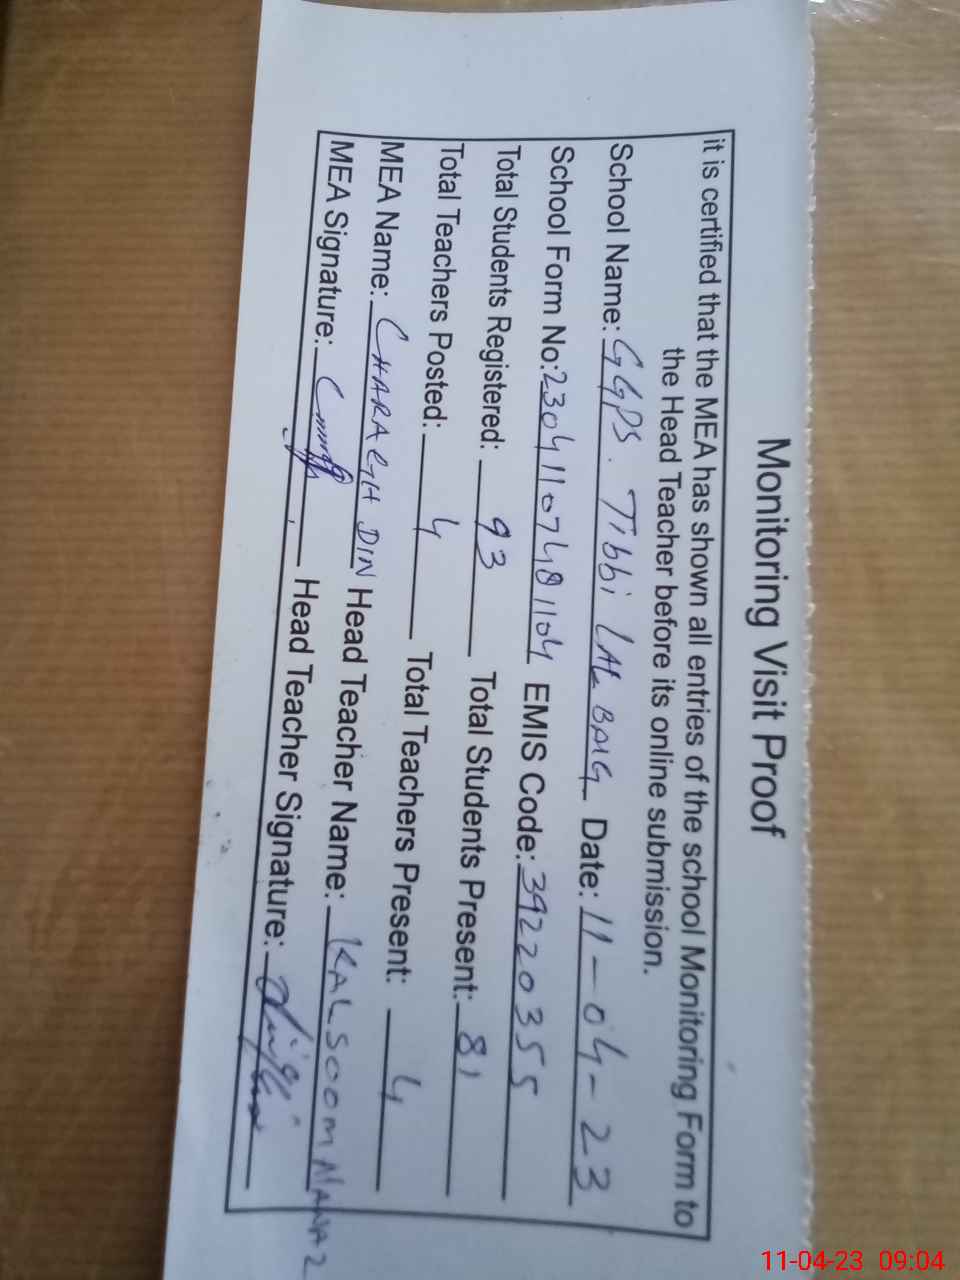 Monitoring Visit Proof
it is certified that the MEA has shown all entries of the school Monitoring Form to
the Head Teacher before its online submission.
School Name: GGPS. Tibbi LAL BAIG Date: 11-04-23
School Form No: 23041107481104 EMIS Code: 39220355
Total Students Registered: 93 Total Students Present: 81
Total Teachers Posted: 4 Total Teachers Present: 4
MEA Name: CHARAGH DIN Head Teacher Name: KALSOOM
MEA Signature: Head Teacher Signature:
11-04-23 09:04